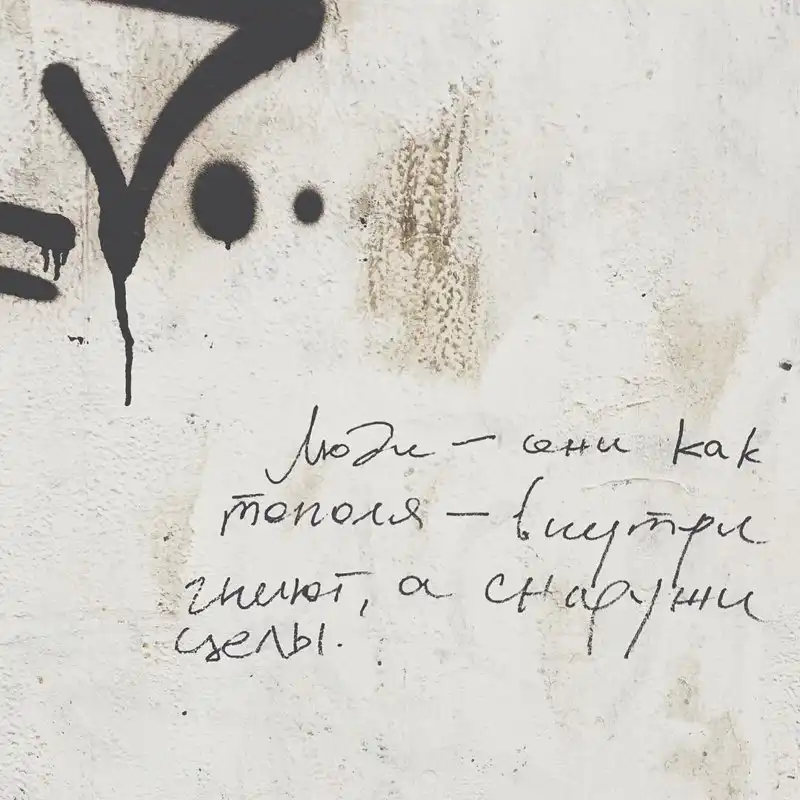 Люди – они как
тополя – внутри
гниют, а снаружи
целы.